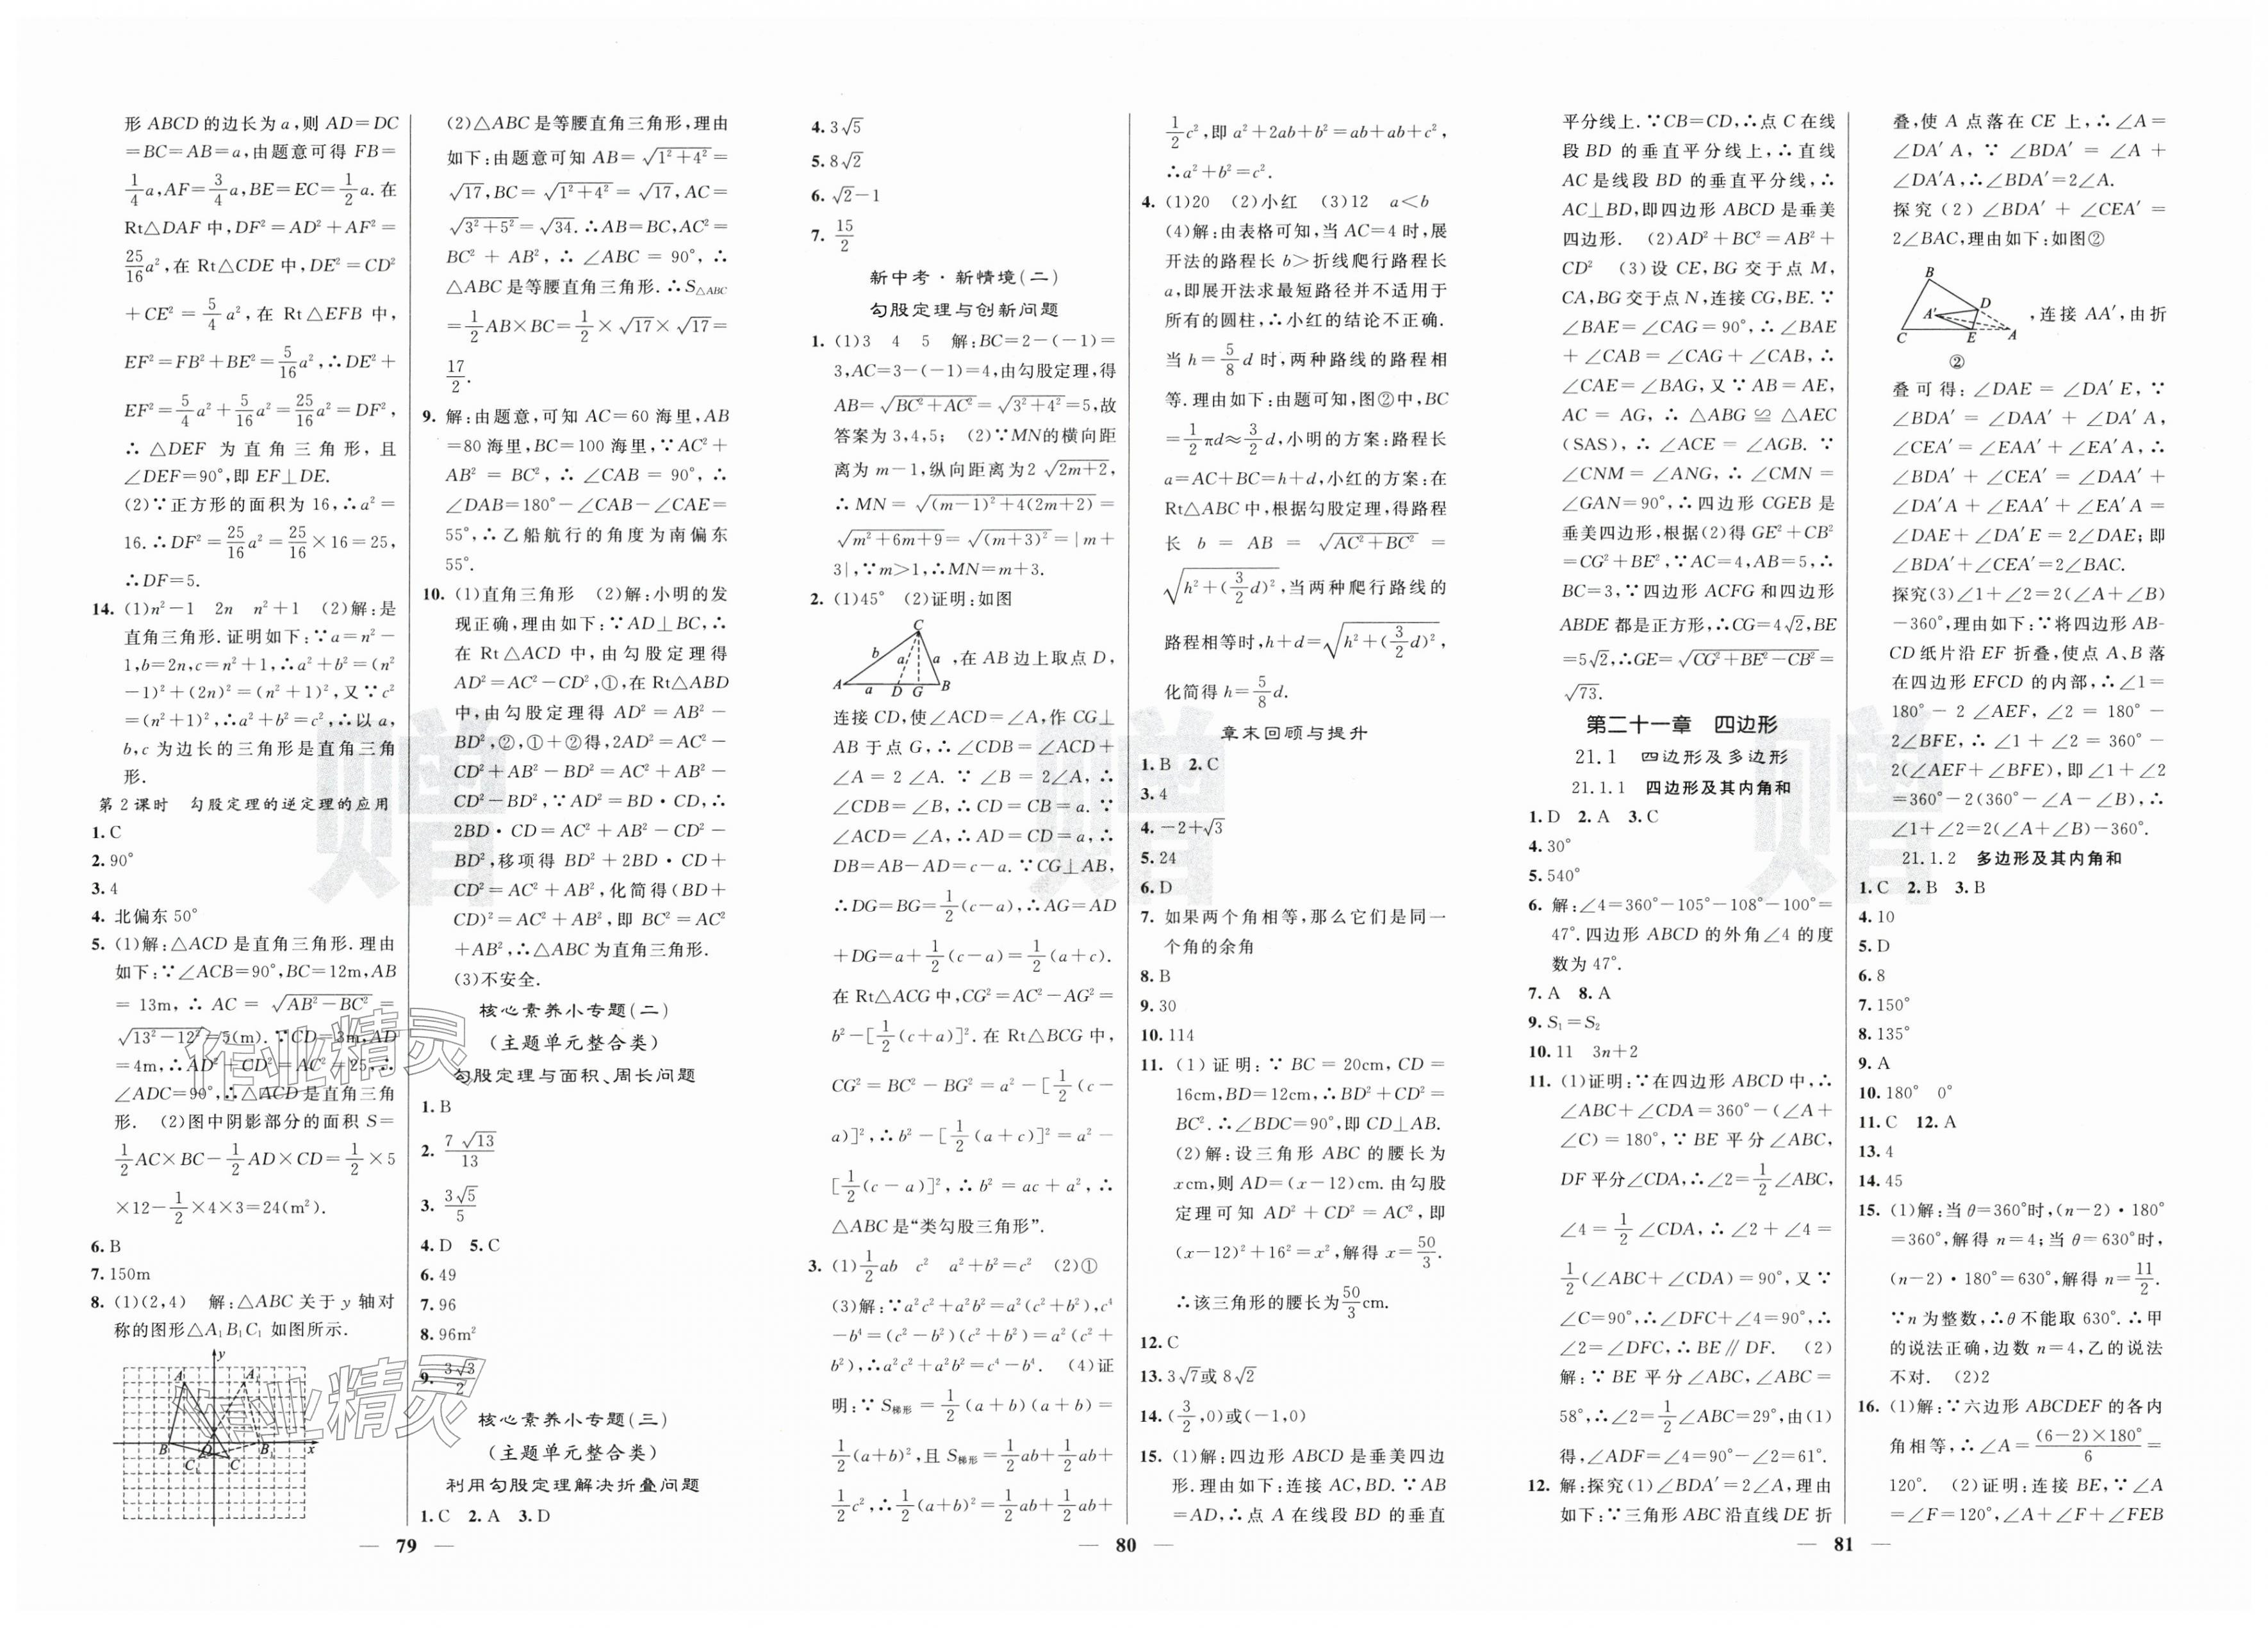 形 ABCD 的边长为 a,则 AD=DC
=BC=AB=a,由题意可得 FB=
1/4 a,AF=3/4 a,BE=EC=1/2 a. 在
Rt△DAF 中,DF²=AD²+AF²=
25/16 a²,在 Rt△CDE 中,DE²=CD²
+CE²=5/4 a²,在 Rt△EFB 中,
EF²=FB²+BE²=5/16 a²,∴DE²+
EF²=5/4 a²+5/16 a²=25/16 a²=DF²,
∴△DEF 为直角三角形,且
∠DEF=90°,即 EF⊥DE.
(2)∵正方形的面积为 16,∴a²=
16.∴DF²=25/16 a²=25/16×16=25,
∴DF=5.
14. (1)n²-1 2n n²+1 (2)解:是
直角三角形.证明如下:∵a=n²-
1,b=2n,c=n²+1,∴a²+b²=(n²
-1)²+(2n)²=(n²+1)²,又∵c²
=(n²+1)²,∴a²+b²=c²,∴以 a,
b,c 为边长的三角形是直角三角
形.
第2课时 勾股定理的逆定理的应用
1. C
2. 90°
3. 4
4. 北偏东 50°
5. (1)解:△ACD 是直角三角形.理由
如下:∵∠ACB=90°,BC=12m,AB
=13m,∴AC=√(AB²-BC²)=
√(13²-12²)=5(m).∵CD=3m,AD
=4m,∴AD²+CD²=AC²=25,∴
∠ADC=90°,∴△ACD 是直角三角
形. (2)图中阴影部分的面积 S=
1/2 AC×BC-1/2 AD×CD=1/2×5
×12-1/2×4×3=24(m²).
6. B
7. 150m
8. (1)(2,4) 解:△ABC 关于 y 轴对
称的图形△A₁B₁C₁ 如图所示.
y
A A₁
B O B₁ x
C₁ C
(2)△ABC 是等腰直角三角形,理由
如下:由题意可知 AB=√(1²+4²)=
√17,BC=√(1²+4²)=√17,AC=
√(3²+5²)=√34.∴AB=BC,AC²=
BC²+AB²,∴∠ABC=90°,∴
△ABC 是等腰直角三角形.∴S△ABC
=1/2 AB×BC=1/2×√17×√17=
17/2.
9. 解:由题意,可知 AC=60 海里,AB
=80 海里,BC=100 海里,∵AC²+
AB²=BC²,∴∠CAB=90°,∴
∠DAB=180°-∠CAB-∠CAE=
55°,∴乙船航行的角度为南偏东
55°.
10. (1)直角三角形 (2)解:小明的发
现正确,理由如下:∵AD⊥BC,∴
在 Rt△ACD 中,由勾股定理得
AD²=AC²-CD²,①,在 Rt△ABD
中,由勾股定理得 AD²=AB²-
BD²,②,①+②得,2AD²=AC²-
CD²+AB²-BD²=AC²+AB²-
CD²-BD²,∵AD²=BD·CD,∴
2BD·CD=AC²+AB²-CD²-
BD²,移项得 BD²+2BD·CD+
CD²=AC²+AB²,化简得(BD+
CD)²=AC²+AB²,即 BC²=AC²
+AB²,∴△ABC 为直角三角形.
(3)不安全.
核心素养小专题(二)
(主题单元整合类)
勾股定理与面积、周长问题
1. B
2. 7√13/13
3. 3√5/5
4. D 5. C
6. 49
7. 96
8. 96m²
9. 3√3/2
核心素养小专题(三)
(主题单元整合类)
利用勾股定理解决折叠问题
1. C 2. A 3. D
— 79 —
4. 3√5
5. 8√2
6. √2-1
7. 15/2
新中考·新情境(二)
勾股定理与创新问题
1. (1)3 4 5 解:BC=2-(-1)=
3,AC=3-(-1)=4,由勾股定理,得
AB=√(BC²+AC²)=√(3²+4²)=5,故
答案为 3,4,5; (2)∵MN的横向距
离为 m-1,纵向距离为2√(2m+2),
∴MN=√((m-1)²+4(2m+2))=
√(m²+6m+9)=√((m+3)²)=|m+
3|,∵m>1,∴MN=m+3.
2. (1)45° (2)证明:如图
C b a a A a D G B
,在 AB 边上取点 D,
连接 CD,使∠ACD=∠A,作 CG⊥
AB 于点 G,∴∠CDB=∠ACD+
∠A=2∠A.∵∠B=2∠A,∴
∠CDB=∠B,∴CD=CB=a.∵
∠ACD=∠A,∴AD=CD=a,∴
DB=AB-AD=c-a.∵CG⊥AB,
∴DG=BG=1/2(c-a),∴AG=AD
+DG=a+1/2(c-a)=1/2(a+c).
在 Rt△ACG 中,CG²=AC²-AG²=
b²-[1/2(c+a)]².在 Rt△BCG 中,
CG²=BC²-BG²=a²-[1/2(c-
a)]²,∴b²-[1/2(a+c)]²=a²-
[1/2(c-a)]²,∴b²=ac+a²,∴
△ABC 是“类勾股三角形”.
3. (1)1/2 ab c² a²+b²=c² (2)①
(3)解:∵a²c²+a²b²=a²(c²+b²),c⁴
-b⁴=(c²-b²)(c²+b²)=a²(c²+
b²),∴a²c²+a²b²=c⁴-b⁴. (4)证
明:∵S梯形=1/2(a+b)(a+b)=
1/2(a+b)²,且 S梯形=1/2 ab+1/2 ab+
1/2 c²,∴1/2(a+b)²=1/2 ab+1/2 ab+
1/2 c²,即 a²+2ab+b²=ab+ab+c²,
∴a²+b²=c².
4. (1)20 (2)小红 (3)12 a<b
(4)解:由表格可知,当 AC=4 时,展
开法的路程长 b>折线爬行路程长
a,即展开法求最短路径并不适用于
所有的圆柱,∴小红的结论不正确.
当 h=5/8 d 时,两种路线的路程相
等.理由如下:由题可知,图②中,BC
=1/2 πd≈3/2 d,小明的方案:路程长
a=AC+BC=h+d,小红的方案:在
Rt△ABC 中,根据勾股定理,得路程
长 b=AB=√(AC²+BC²)=
√(h²+(3/2 d)²),当两种爬行路线的
路程相等时,h+d=√(h²+(3/2 d)²),
化简得 h=5/8 d.
章末回顾与提升
1. B 2. C
3. 4
4. -2+√3
5. 24
6. D
7. 如果两个角相等,那么它们是同一
个角的余角
8. B
9. 30
10. 114
11. (1)证明:∵BC=20cm,CD=
16cm,BD=12cm,∴BD²+CD²=
BC².∴∠BDC=90°,即 CD⊥AB.
(2)解:设三角形 ABC 的腰长为
xcm,则 AD=(x-12)cm.由勾股
定理可知 AD²+CD²=AC²,即
(x-12)²+16²=x²,解得 x=50/3.
∴该三角形的腰长为50/3cm.
12. C
13. 3√7或 8√2
14. (3/2,0)或(-1,0)
15. (1)解:四边形 ABCD 是垂美四边
形.理由如下:连接 AC,BD.∵AB
=AD,∴点 A 在线段 BD 的垂直
— 80 —
平分线上.∵CB=CD,∴点 C 在线
段 BD 的垂直平分线上,∴直线
AC 是线段 BD 的垂直平分线,∴
AC⊥BD,即四边形 ABCD 是垂美
四边形. (2)AD²+BC²=AB²+
CD² (3)设 CE,BG 交于点 M,
CA,BG 交于点 N,连接 CG,BE.∵
∠BAE=∠CAG=90°,∴∠BAE
+∠CAB=∠CAG+∠CAB,∴
∠CAE=∠BAG,又∵AB=AE,
AC=AG,∴△ABG≌△AEC
(SAS),∴∠ACE=∠AGB.∵
∠CNM=∠ANG,∴∠CMN=
∠GAN=90°,∴四边形 CGEB 是
垂美四边形,根据(2)得 GE²+CB²
=CG²+BE²,∵AC=4,AB=5,∴
BC=3,∵四边形 ACFG 和四边形
ABDE 都是正方形,∴CG=4√2,BE
=5√2,∴GE=√(CG²+BE²-CB²)=
√73.
第二十一章 四边形
21.1 四边形及多边形
21.1.1 四边形及其内角和
1. D 2. A 3. C
4. 30°
5. 540°
6. 解:∠4=360°-105°-108°-100°=
47°.四边形 ABCD 的外角∠4 的度
数为 47°.
7. A 8. A
9. S₁=S₂
10. 11 3n+2
11. (1)证明:∵在四边形 ABCD 中,∴
∠ABC+∠CDA=360°-(∠A+
∠C)=180°,∵BE 平分∠ABC,
DF 平分∠CDA,∴∠2=1/2∠ABC,
∠4=1/2∠CDA,∴∠2+∠4=
1/2(∠ABC+∠CDA)=90°,又∵
∠C=90°,∴∠DFC+∠4=90°,∴
∠2=∠DFC,∴BE∥DF. (2)
解:∵BE 平分∠ABC,∠ABC=
58°,∴∠2=1/2∠ABC=29°,由(1)
得,∠ADF=∠4=90°-∠2=61°.
12. 解:探究(1)∠BDA′=2∠A,理由
如下:∵三角形 ABC 沿直线 DE 折
叠,使 A 点落在 CE 上,∴∠A=
∠DA′A,∵∠BDA′=∠A+
∠DA′A,∴∠BDA′=2∠A.
探究(2)∠BDA′+∠CEA′=
2∠BAC,理由如下:如图②
B D A′ C E A
②
,连接 AA′,由折
叠可得:∠DAE=∠DA′E,∵
∠BDA′=∠DAA′+∠DA′A,
∠CEA′=∠EAA′+∠EA′A,∴
∠BDA′+∠CEA′=∠DAA′+
∠DA′A+∠EAA′+∠EA′A=
∠DAE+∠DA′E=2∠DAE;即
∠BDA′+∠CEA′=2∠BAC.
探究(3)∠1+∠2=2(∠A+∠B)
-360°,理由如下:∵将四边形 AB-
CD纸片沿 EF 折叠,使点 A、B 落
在四边形 EFCD 的内部,∴∠1=
180°-2∠AEF,∠2=180°-
2∠BFE,∴∠1+∠2=360°-
2(∠AEF+∠BFE),即∠1+∠2
=360°-2(360°-∠A-∠B),∴
∠1+∠2=2(∠A+∠B)-360°.
21.1.2 多边形及其内角和
1. C 2. B 3. B
4. 10
5. D
6. 8
7. 150°
8. 135°
9. A
10. 180° 0°
11. C 12. A
13. 4
14. 45
15. (1)解:当θ=360°时,(n-2)·180°
=360°,解得 n=4;当θ=630°时,
(n-2)·180°=630°,解得 n=11/2.
∵n 为整数,∴θ不能取 630°.∴甲
的说法正确,边数 n=4,乙的说法
不对. (2)2
16. (1)解:∵六边形 ABCDEF 的各内
角相等,∴∠A=(6-2)×180°/6=
120°. (2)证明:连接 BE,∵∠A
=∠F=120°,∠A+∠F+∠FEB
— 81 —
赠
赠
赠
作业精灵
作业精灵